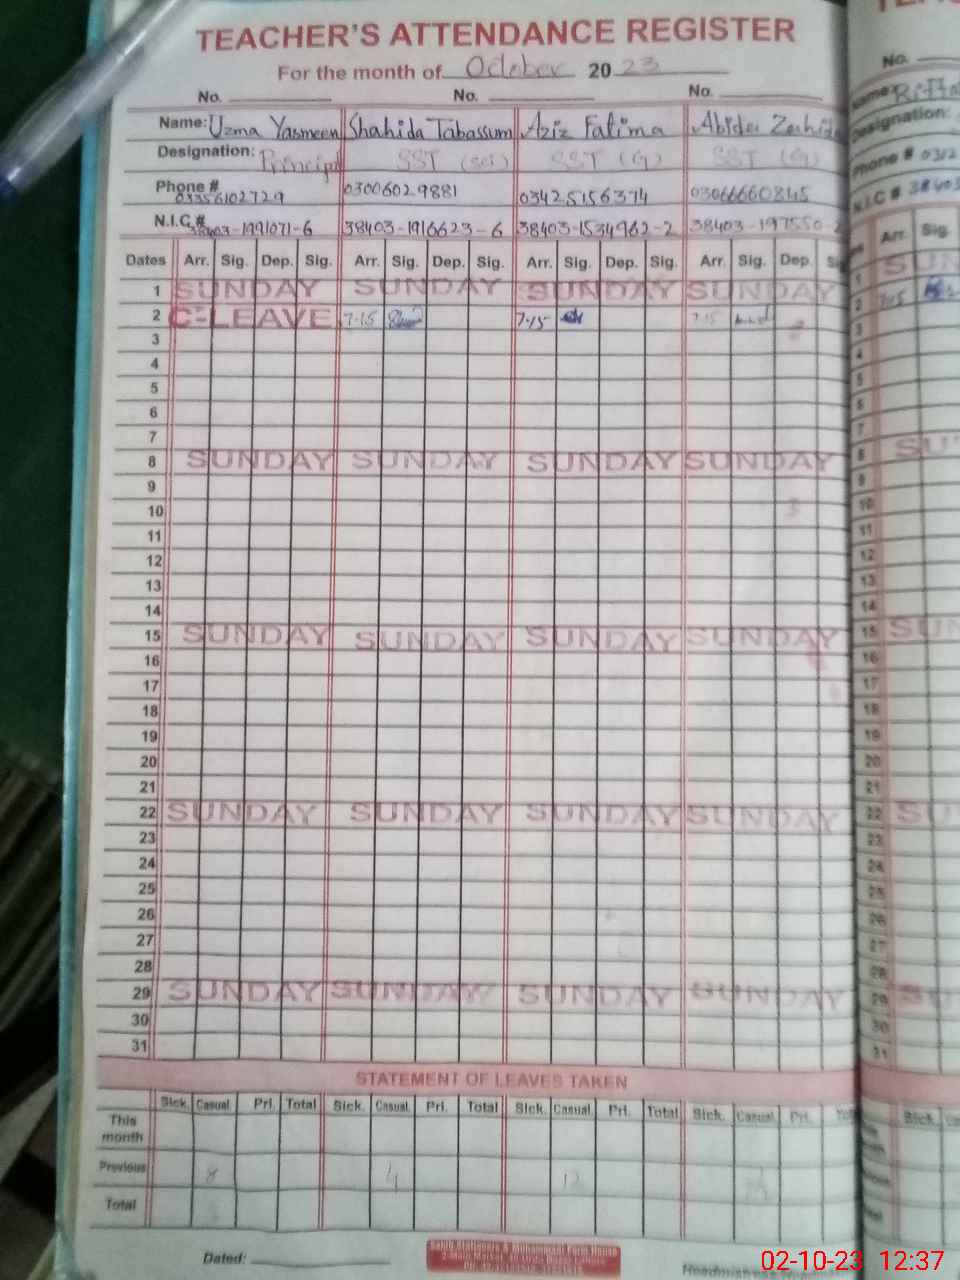 TEACHER'S ATTENDANCE REGISTER
For the month of October 2023
No. No. No.
Name: Uzma Yasmeen Shahida Tabassum Aziz Fatima Abida
Designation: Principal SST (sci) SST (G) SST (G)
Phone # 03356102729 03006029881 03425156374 03066660845
N.I.C.# 38403-1991071-6 38403-1916623-6 38403-1534962-2 38403-197550-2
Dates Arr. Sig. Dep. Sig. Arr. Sig. Dep. Sig. Arr. Sig. Dep. Sig. Arr. Sig. Dep.
1 SUNDAY SUNDAY SUNDAY SUNDAY
2 C-LEAVE 7-15 7-15 7-15
3
4
5
6
7
8 SUNDAY SUNDAY SUNDAY SUNDAY
9
10
11
12
13
14
15 SUNDAY SUNDAY SUNDAY SUNDAY
16
17
18
19
20
21
22 SUNDAY SUNDAY SUNDAY SUNDAY
23
24
25
26
27
28
29 SUNDAY SUNDAY SUNDAY SUNDAY
30
31
STATEMENT OF LEAVES TAKEN
Sick. Casual. Pri. Total Sick. Casual. Pri. Total Sick. Casual. Pri. Total Sick. Casual. Pri.
This month
Previous 8 4 12
Total
Dated:
02-10-23 12:37